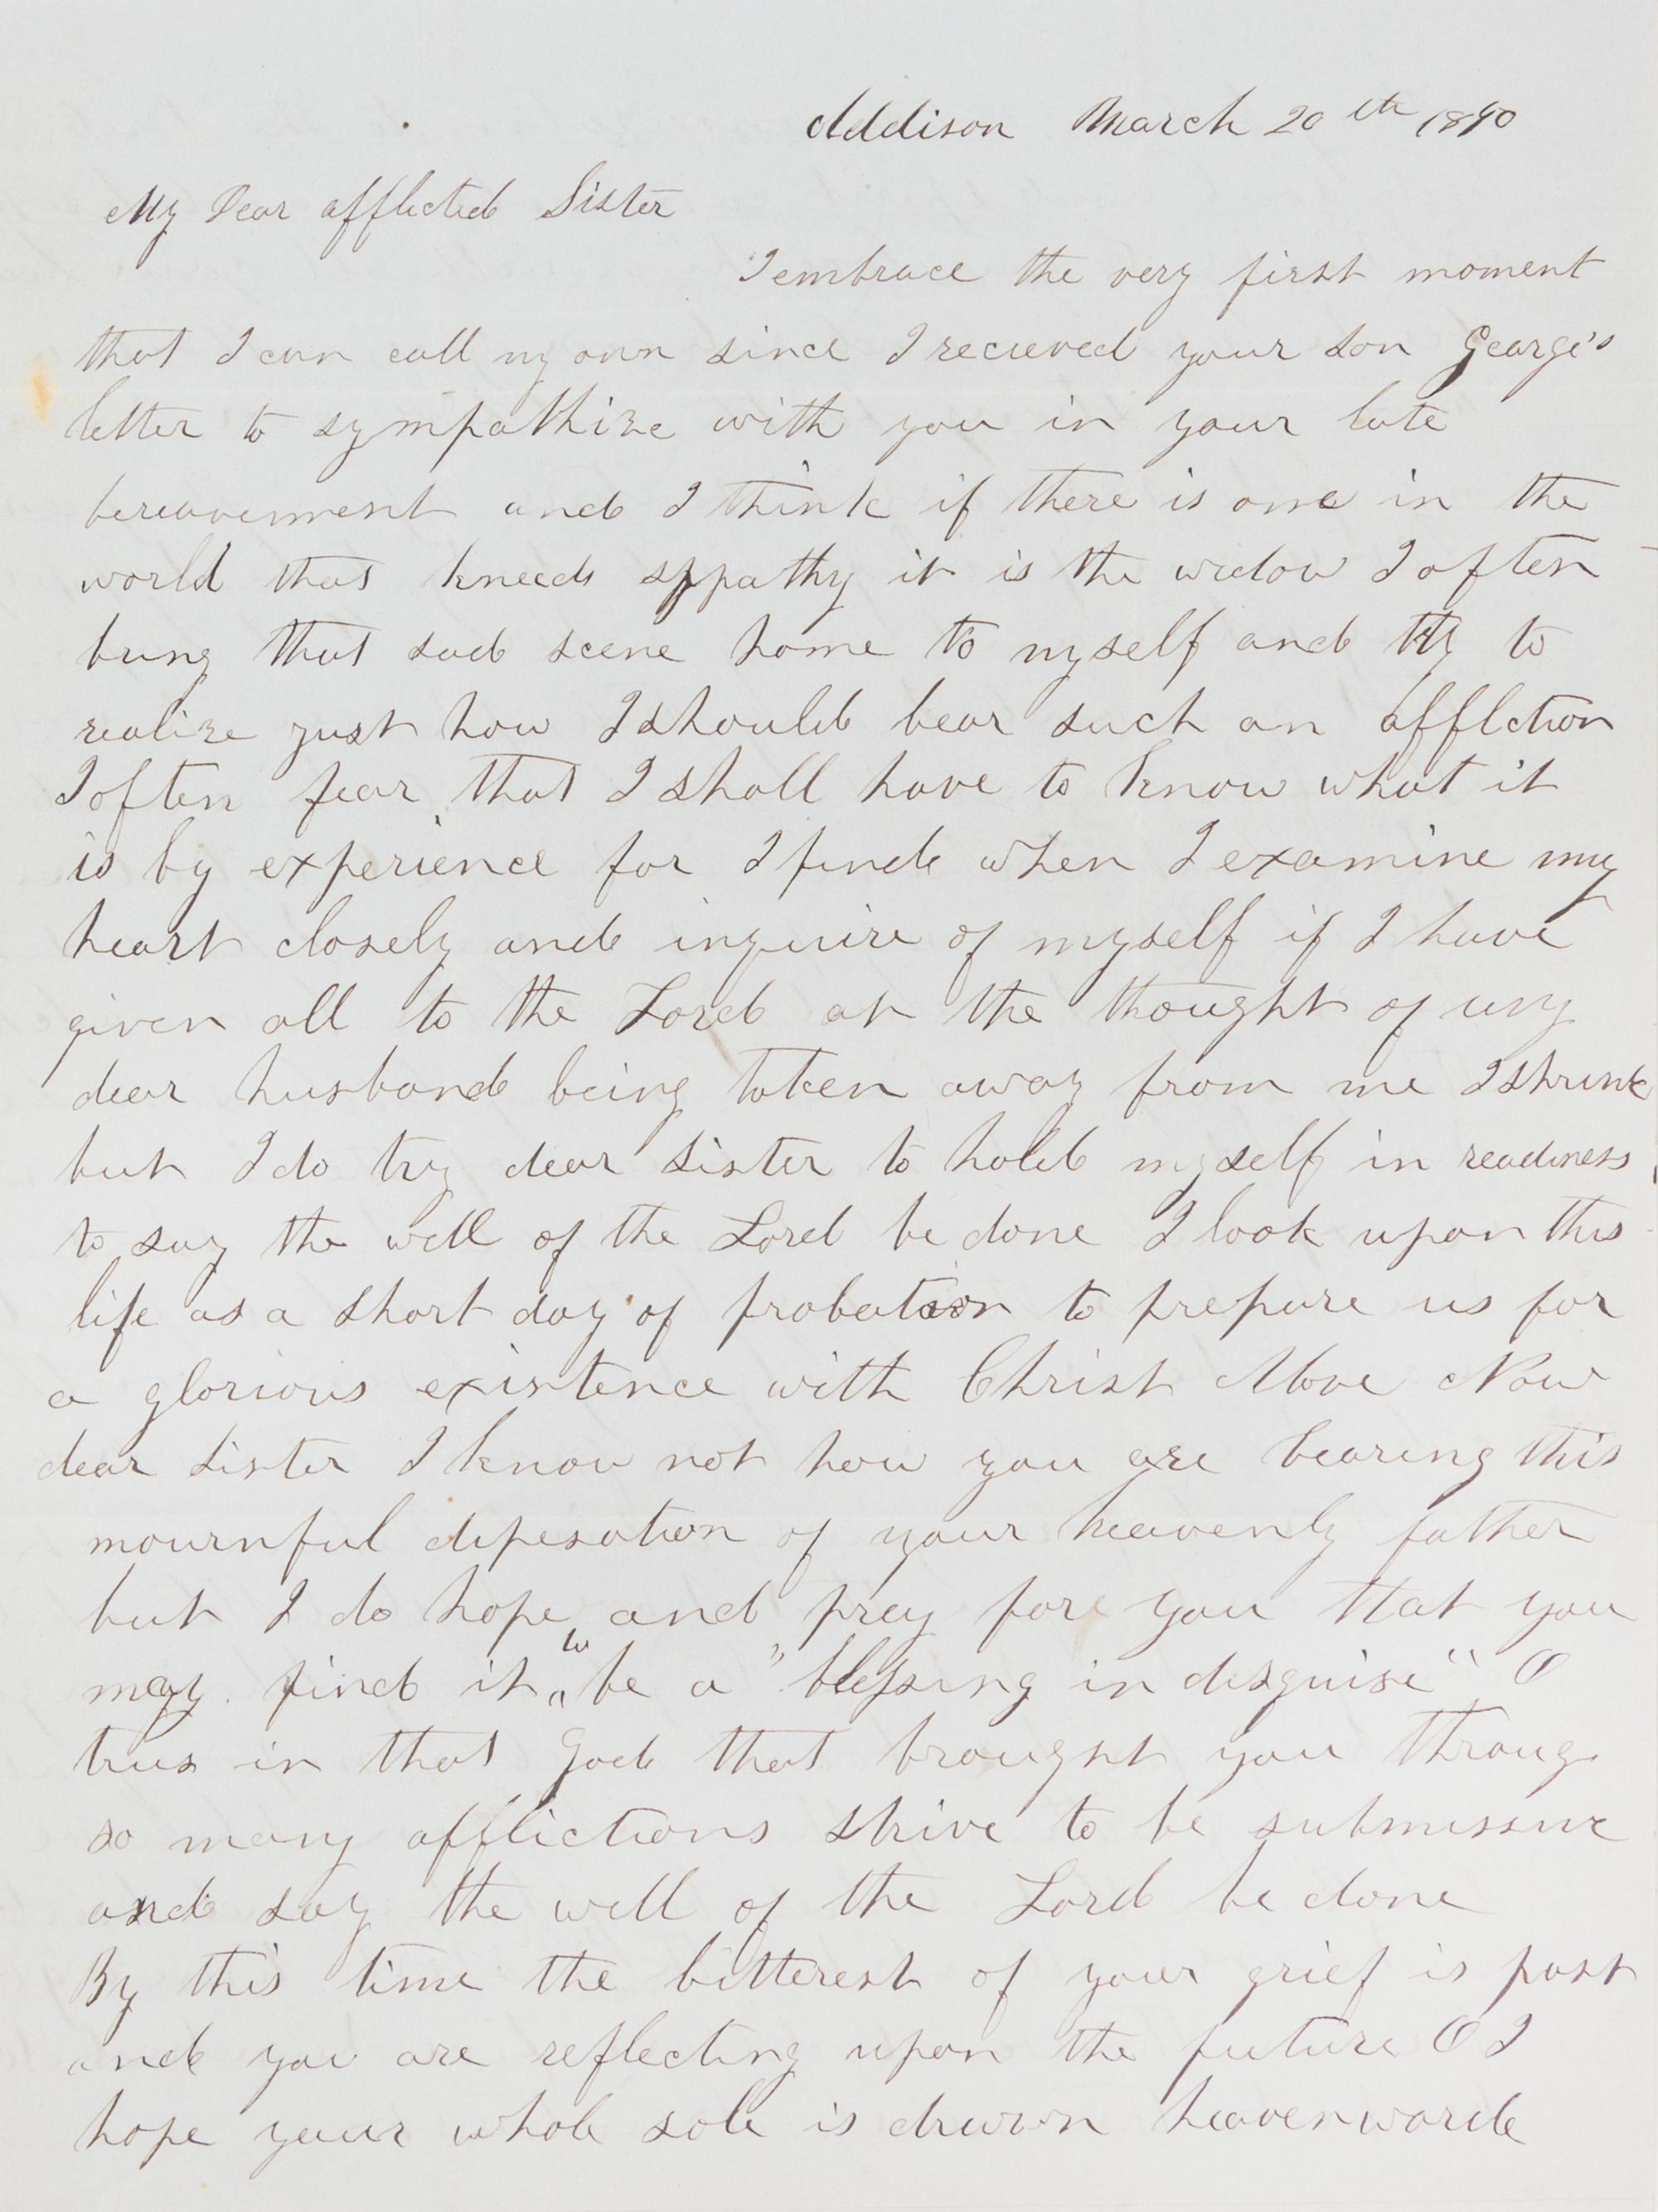 Addison March 20th 1890
My Dear afflicted Sister
I embrace the very first moment
that I can call my own since I recieved your son George's
letter to sympathize with you in your late
bereavenment and I think if there is one in the
world that kneeds sypathy it is the widow I often
bring that sad scene home to myself and try to
realize just how I should bear such an afflction
I often fear that I shall have to know what it
is by experience for I find when I examine my
heart closely and inquire of myself if I have
given all to the Lord at the thought of my
dear husband being taken away from me I shrink
but I do try dear sister to hold myself in readiness
to say the will of the Lord be done I look upon this
life as a short day of probation to prepare us for
a glorious existence with Christ Above Now
dear sister I know not how you are bearing this
mournful dipesation of your heavenly father
but I do hope and pray fore you that you
may find it to be a "blessing in disguise" O
trus in that God that brought you throug
so many afflictions strive to be submissive
and say the will of the Lord be done
By this time the bitterest of your grief is past
and you are reflecting upon the future O I
hope your whole sole is drawn heavenward